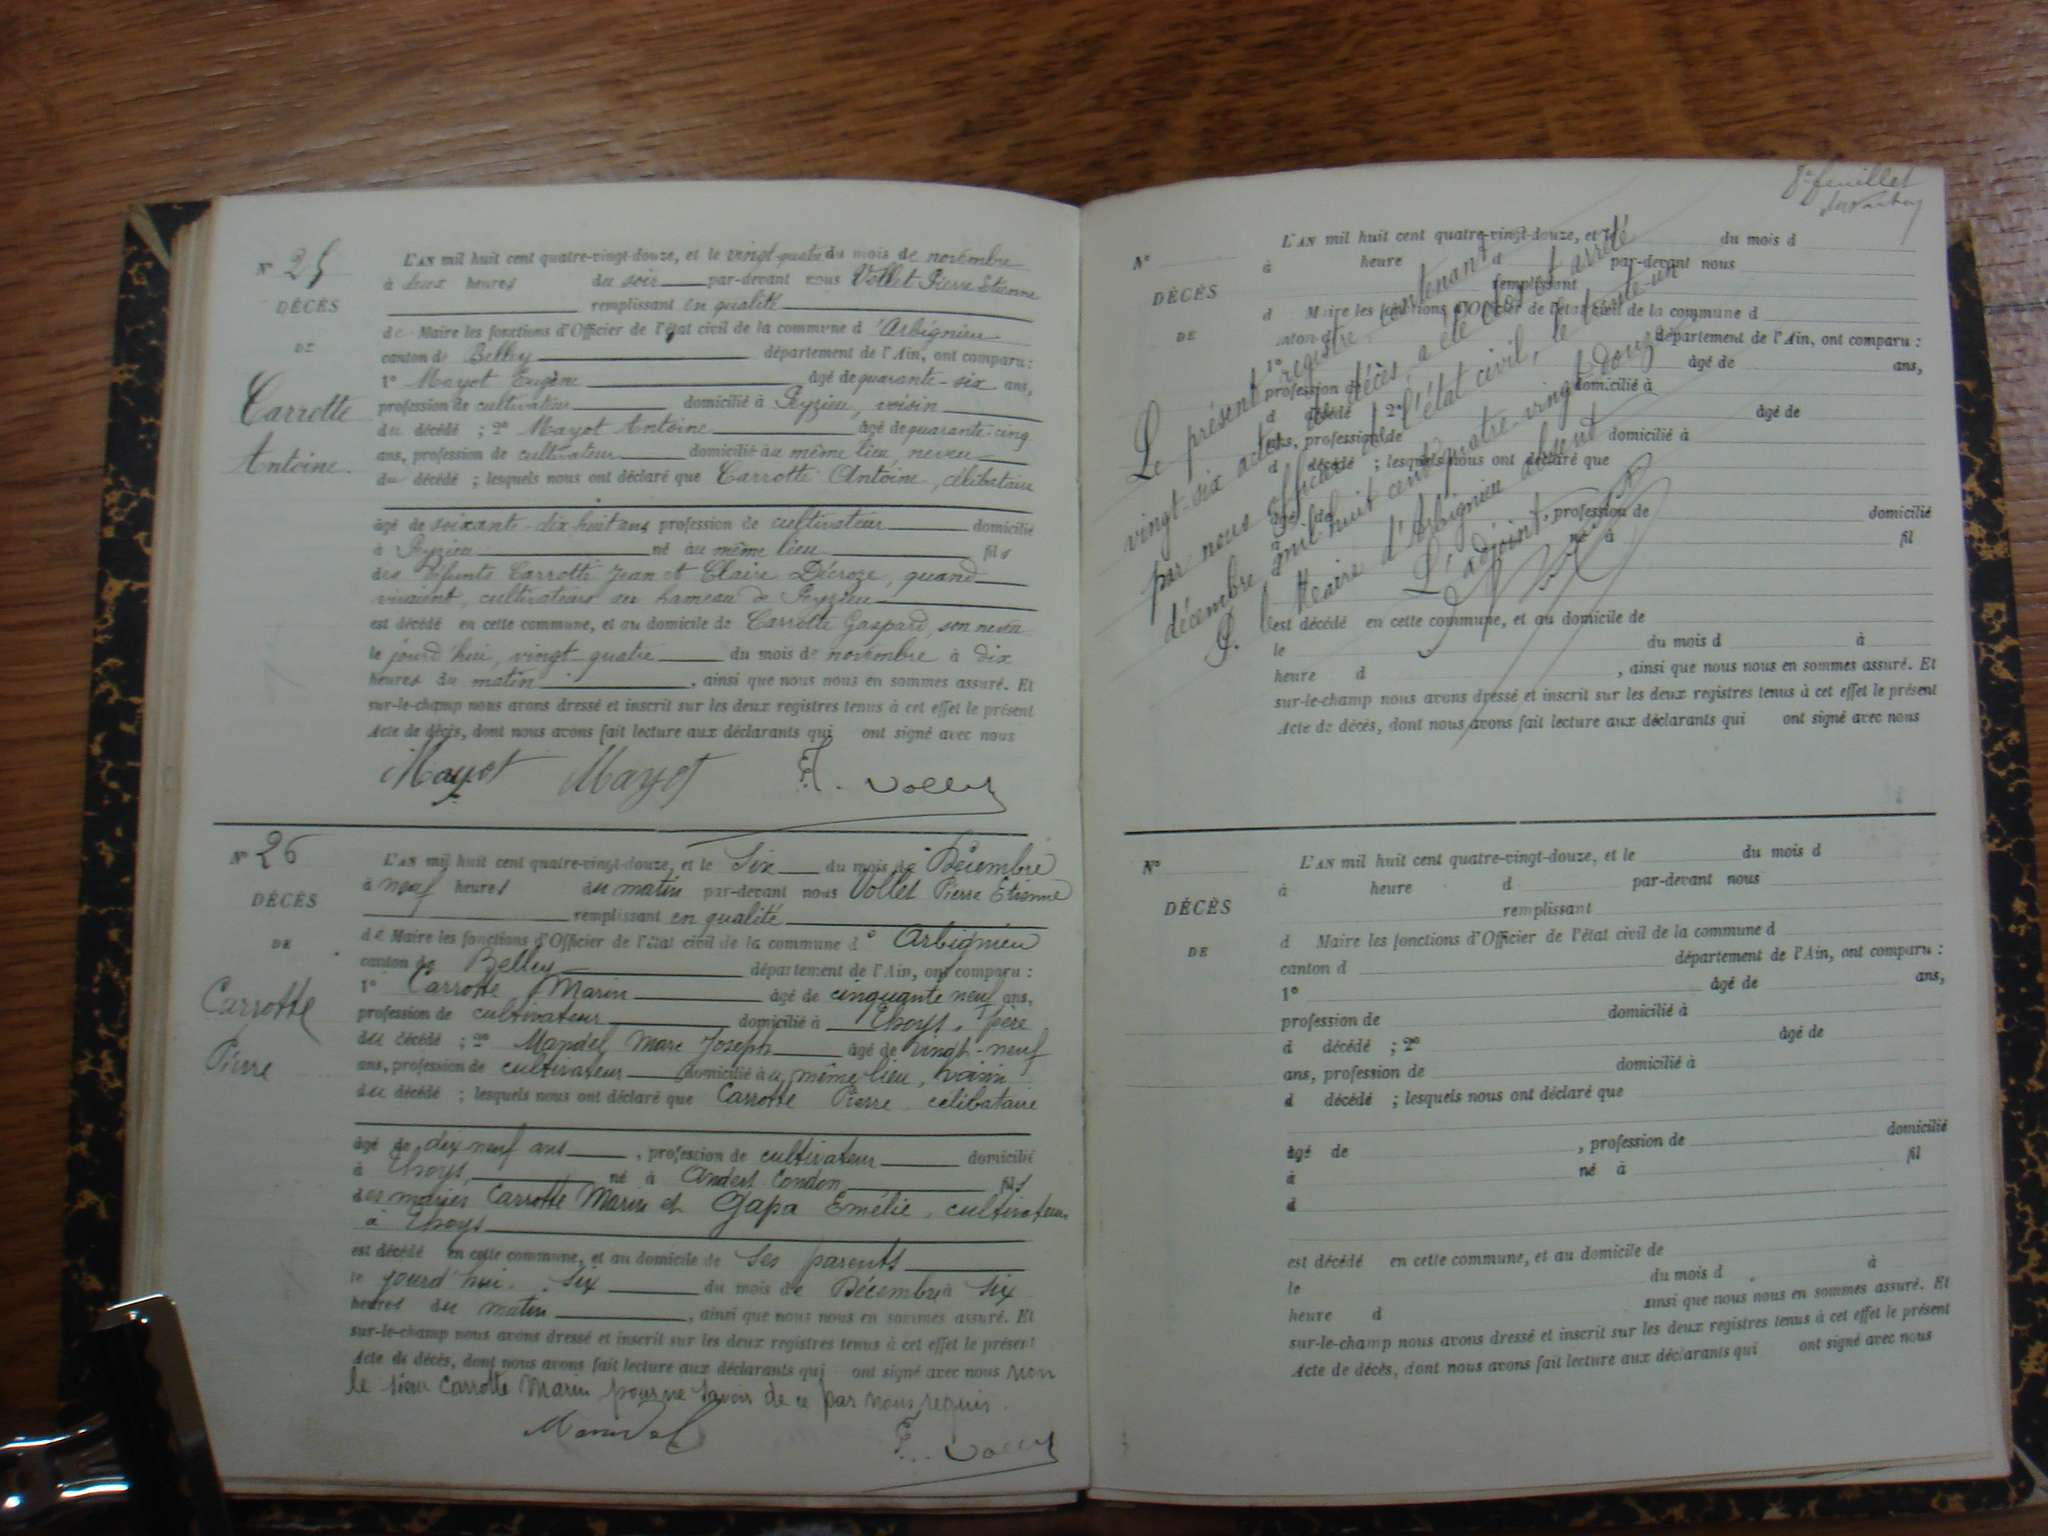 N° 25
DÉCÈS
DE
Carrotte
Antoine.
L'AN mil huit cent quatre-vingt-douze, et le vingt-quatre du mois de novembre
à deux heures du soir par-devant nous Vollet Pierre Etienne
remplissant en qualité
de Maire les fonctions d'Officier de l'état civil de la commune d'Arbignieu
canton de Belley département de l'Ain, ont comparu :
1° Mayot Eugène âgé de quarante-six ans,
profession de cultivateur domicilié à Peyzieu, voisin
du décédé ; 2° Mayot Antoine âgé de quarante-cinq
ans, profession de cultivateur domicilié au même lieu, neveu
du décédé ; lesquels nous ont déclaré que Carrotte Antoine, célibataire
âgé de soixante-dix huit ans, profession de cultivateur domicilié
à Peyzieu né au même lieu fils
des défunts Carrotte Jean et Claire Décroze, quand
vivaient, cultivateurs au hameau de Peyzieu
est décédé en cette commune, et au domicile de Carrotte Gaspard, son neveu
le jourd'hui, vingt-quatre du mois de novembre à dix
heures du matin, ainsi que nous nous en sommes assuré. Et
sur-le-champ nous avons dressé et inscrit sur les deux registres tenus à cet effet le présent
Acte de décès, dont nous avons fait lecture aux déclarants qui ont signé avec nous
Mayot Mayot Vollet
N° 26
DÉCÈS
DE
Carrotte
Pierre
L'AN mil huit cent quatre-vingt-douze, et le Six du mois de Décembre
à neuf heures du matin par-devant nous Vollet Pierre Etienne
remplissant en qualité
de Maire les fonctions d'Officier de l'état civil de la commune d' Arbignieu
canton de Belley département de l'Ain, ont comparu :
1° Carrotte Marin âgé de cinquante neuf ans,
profession de cultivateur domicilié à Thoys, père
du décédé ; 2° Mandel Marc Joseph âgé de vingt-neuf
ans, profession de cultivateur domicilié au même lieu, voisin
du décédé ; lesquels nous ont déclaré que Carrotte Pierre célibataire
âgé de dix neuf ans, profession de cultivateur domicilié
à Thoys, né à Andert-Condon fils
des mariés Carrotte Marin et Gapa Emélie, cultivateurs
à Thoys
est décédé en cette commune, et au domicile de Ses parents
le jourd'hui Six du mois de Décembre à Six
heures du matin, ainsi que nous nous en sommes assuré. Et
sur-le-champ nous avons dressé et inscrit sur les deux registres tenus à cet effet le présent
Acte de décès, dont nous avons fait lecture aux déclarants qui ont signé avec nous non
le sieur Carrotte Marin pour ne savoir de ce par nous requis.
Mandel Vollet
8e feuillet
N°
DÉCÈS
DE
L'AN mil huit cent quatre-vingt-douze, et le du mois d
à heure d par-devant nous
remplissant
d Maire les fonctions d'Officier de l'état civil de la commune d
canton d département de l'Ain, ont comparu :
1° âgé de ans,
profession de domicilié à
d décédé 2° âgé de
ans, profession de domicilié à
d décédé ; lesquels nous ont déclaré que
âgé de , profession de domicilié
à né à fil
d
est décédé en cette commune, et au domicile de
le du mois d à
heure d , ainsi que nous nous en sommes assuré. Et
sur-le-champ nous avons dressé et inscrit sur les deux registres tenus à cet effet le présent
Acte de décès, dont nous avons fait lecture aux déclarants qui ont signé avec nous
Le présent registre contenant
vingt-six actes de décès, a été clos et arrêté
par nous officier de l'état civil, le trente-un
décembre mil-huit cent quatre-vingt-douze
P. le Maire d'Arbignieu absent
L'adjoint,
N°
DÉCÈS
DE
L'AN mil huit cent quatre-vingt-douze, et le du mois d
à heure d par-devant nous
remplissant
d Maire les fonctions d'Officier de l'état civil de la commune d
canton d département de l'Ain, ont comparu :
1° âgé de ans,
profession de domicilié à
d décédé ; 2° âgé de
ans, profession de domicilié à
d décédé ; lesquels nous ont déclaré que
âgé de , profession de domicilié
à né à fil
d
est décédé en cette commune, et au domicile de
le du mois d à
heure d ainsi que nous nous en sommes assuré. Et
sur-le-champ nous avons dressé et inscrit sur les deux registres tenus à cet effet le présent
Acte de décès, dont nous avons fait lecture aux déclarants qui ont signé avec nous